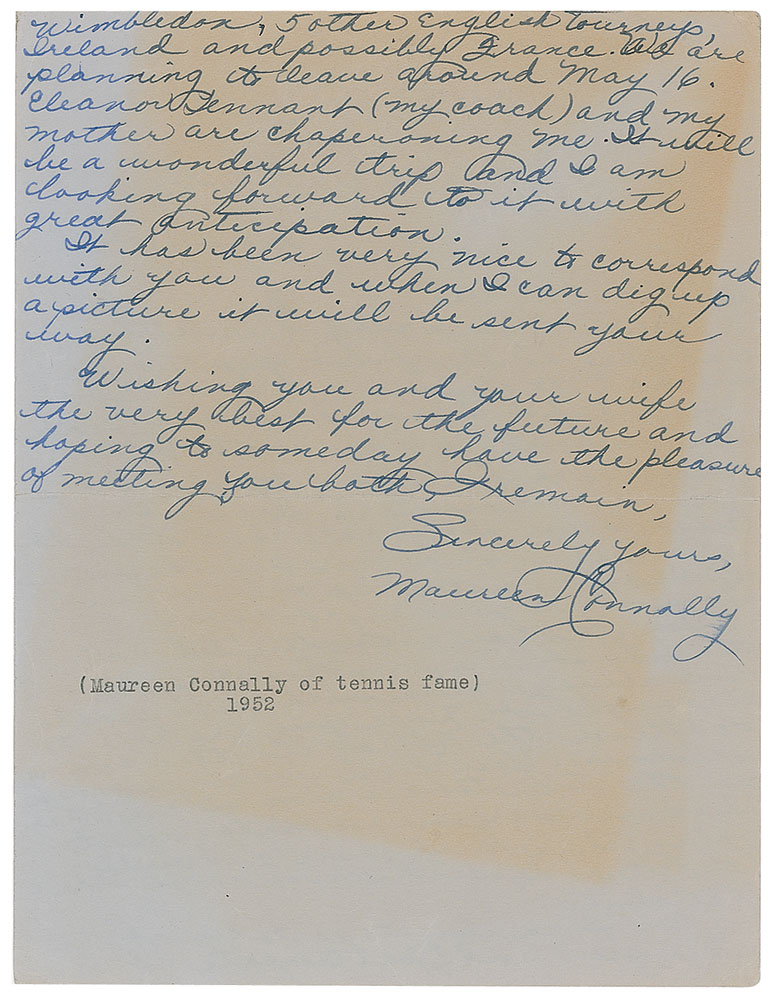 Wimbledon, 5 other English tourneys,
Ireland and possibly France. We are
planning to leave around May 16.
Eleanor Tennant (my coach) and my
mother are chaperoning me. It will
be a wonderful trip and I am
looking forward to it with
great anticipation.
It has been very nice to correspond
with you and when I can dig up
a picture it will be sent your
way.
Wishing you and your wife
the very best for the future and
hoping to someday have the pleasure
of meeting you both, I remain,
Sincerely yours,
Maureen Connolly
(Maureen Connally of tennis fame)
1952